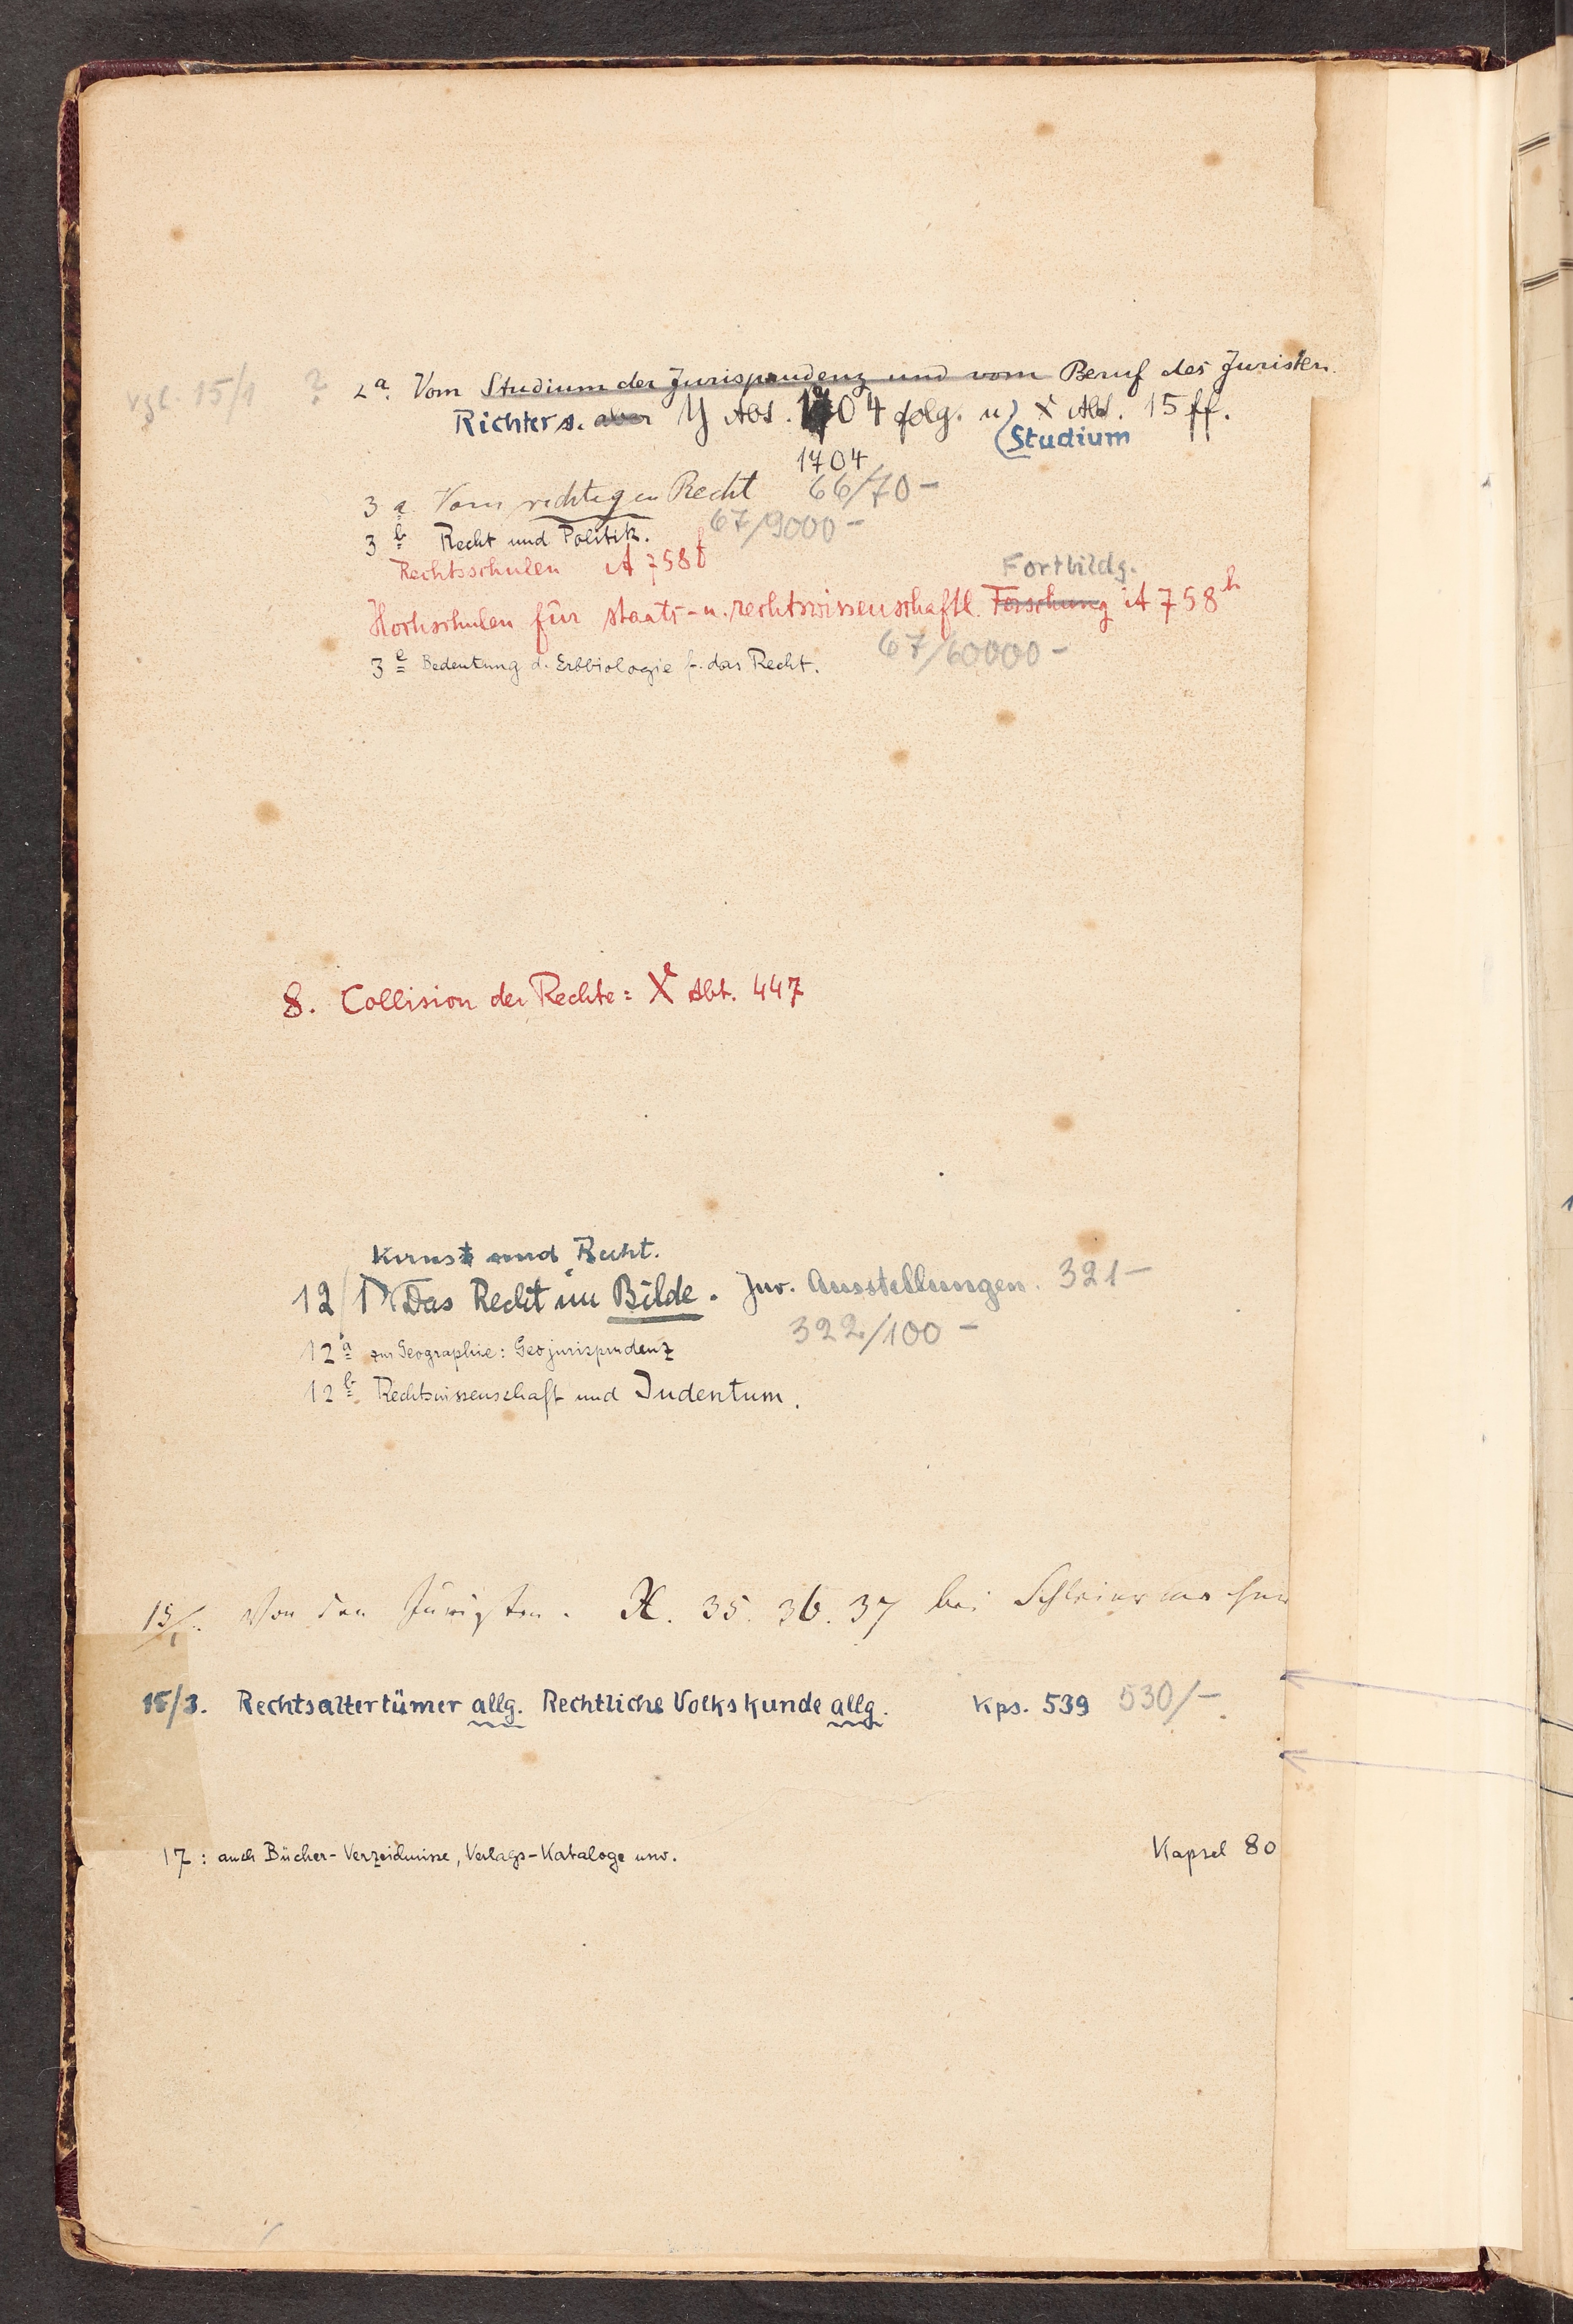 vgl. 15/1 ? 2a. Vom Studium der Jurisprudenz und vom Beruf des Juristen.
Richter s. aber Y Abs. 1704 folg. u) X Abt. 15 ff.
(Studium
1704
3 a Vom richtigen Recht 66/70-
3 b Recht und Politik. 67/9000-
Rechtsschulen A 758f
Fortbildg.
Hochschulen für staats- u. rechtswissenschaftl. Forschung A 758h
3 e Bedeutung d. Erbbiologie f. das Recht. 67/60000-
8. Collision der Rechte: Xe Abt. 447
Kunst und Recht.
12/1 Das Recht im Bilde. Jur. Ausstellungen. 321-
322/100-
12a zur Geographie: Geojurisprudenz
12b Rechtswissenschaft und Judentum.
15/1. Von den Juristen. X. 35. 36. 37 bei
15/3. Rechtsaltertümer allg. Rechtliche Volkskunde allg. Kps. 539 530/-
17: auch Bücher-Verzeichnisse, Verlags-Kataloge usw. Kapsel 80